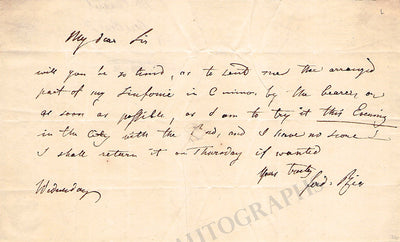 My dear Sir
will you be so kind, as to send me the arranged
part of my Sinfonie in C minor by the bearer, or
as soon as possible, as I am to try it this Evening
in the City with the and, and I have no score I
I shall return it on Thursday if wanted
Yours truly
Wednesday Ferd. Ries
AUTOGRAPH